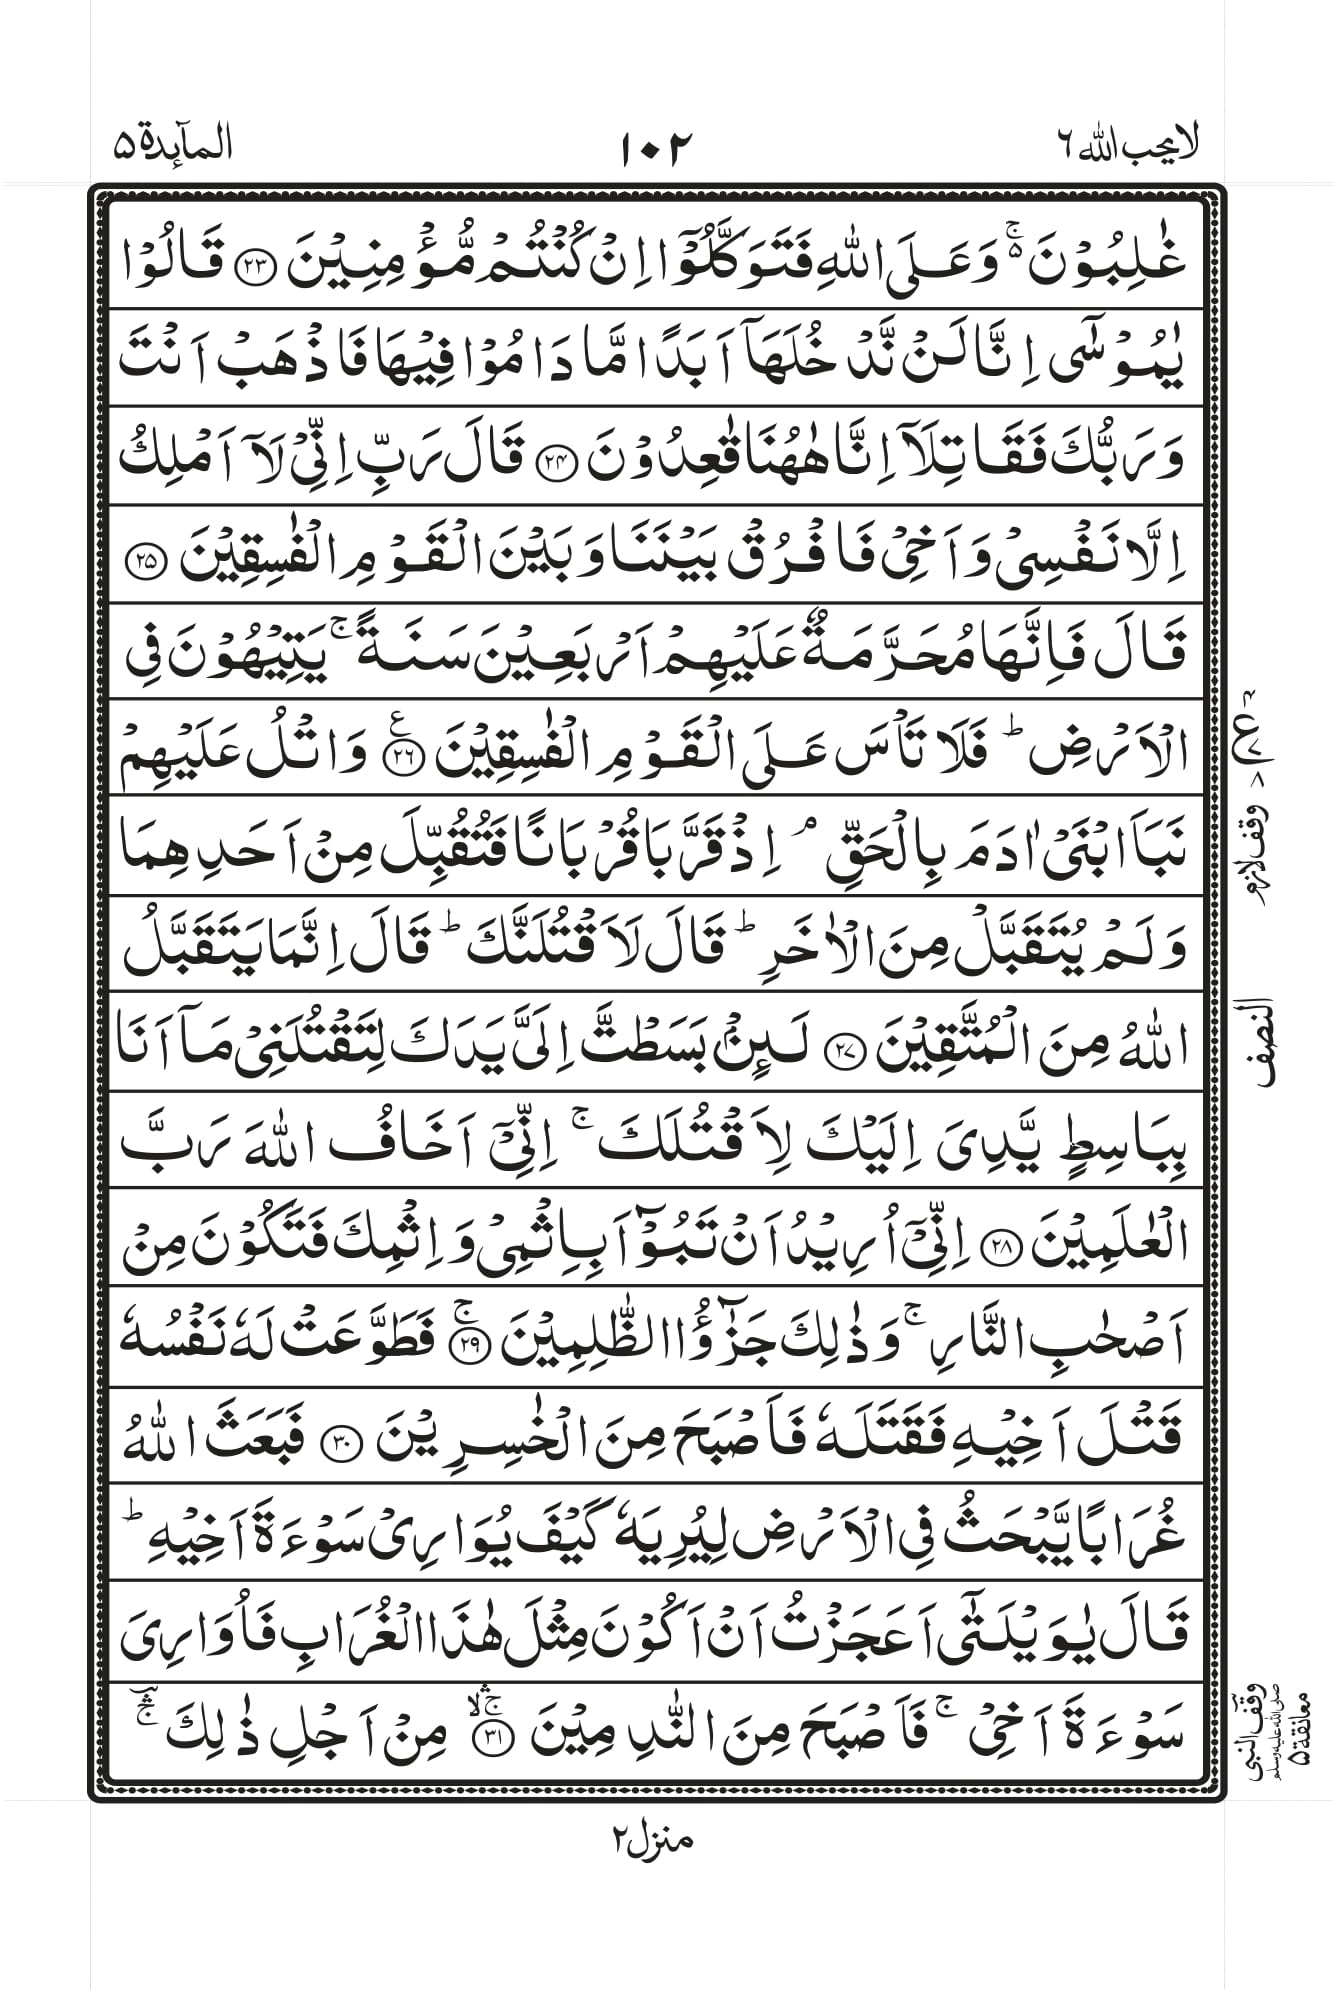 لا يحب الله ٦
١٠٢
المآئدة ٥
غٰلِبُوْنَ ۚ۬ وَعَلَى اللّٰهِ فَتَوَكَّلُوْۤا اِنْ كُنْتُمْ مُّؤْمِنِيْنَ ﴿۲۳﴾ قَالُوْا
يٰمُوْسٰۤى اِنَّا لَنْ نَّدْخُلَهَاۤ اَبَدًا مَّا دَامُوْا فِيْهَا فَاذْهَبْ اَنْتَ
وَرَبُّكَ فَقَاتِلَاۤ اِنَّا هٰهُنَا قٰعِدُوْنَ ﴿۲۴﴾ قَالَ رَبِّ اِنِّيْ لَاۤ اَمْلِكُ
اِلَّا نَفْسِيْ وَاَخِيْ فَافْرُقْ بَيْنَنَا وَبَيْنَ الْقَوْمِ الْفٰسِقِيْنَ ﴿۲۵﴾
قَالَ فَاِنَّهَا مُحَرَّمَةٌ عَلَيْهِمْ اَرْبَعِيْنَ سَنَةً ۚ يَتِيْهُوْنَ فِي
الْاَرْضِ ؕ فَلَا تَاْسَ عَلَى الْقَوْمِ الْفٰسِقِيْنَ ﴿۲۶﴾ ع وَاتْلُ عَلَيْهِمْ
نَبَاَ ابْنَيْ اٰدَمَ بِالْحَقِّ ۘ اِذْ قَرَّبَا قُرْبَانًا فَتُقُبِّلَ مِنْ اَحَدِهِمَا
وَلَمْ يُتَقَبَّلْ مِنَ الْاٰخَرِ ؕ قَالَ لَاَقْتُلَنَّكَ ؕ قَالَ اِنَّمَا يَتَقَبَّلُ
اللّٰهُ مِنَ الْمُتَّقِيْنَ ﴿۲۷﴾ لَئِنْۢ بَسَطْتَّ اِلَيَّ يَدَكَ لِتَقْتُلَنِيْ مَاۤ اَنَا
بِبَاسِطٍ يَّدِيَ اِلَيْكَ لِاَقْتُلَكَ ۚ اِنِّيْۤ اَخَافُ اللّٰهَ رَبَّ
الْعٰلَمِيْنَ ﴿۲۸﴾ اِنِّيْۤ اُرِيْدُ اَنْ تَبُوْٓاَ بِاِثْمِيْ وَاِثْمِكَ فَتَكُوْنَ مِنْ
اَصْحٰبِ النَّارِ ۚ وَذٰلِكَ جَزٰٓؤُا الظّٰلِمِيْنَ ﴿۲۹﴾ ۚ فَطَوَّعَتْ لَهٗ نَفْسُهٗ
قَتْلَ اَخِيْهِ فَقَتَلَهٗ فَاَصْبَحَ مِنَ الْخٰسِرِيْنَ ﴿۳۰﴾ فَبَعَثَ اللّٰهُ
غُرَابًا يَّبْحَثُ فِي الْاَرْضِ لِيُرِيَهٗ كَيْفَ يُوَارِيْ سَوْءَةَ اَخِيْهِ ؕ
قَالَ يٰوَيْلَتٰۤى اَعَجَزْتُ اَنْ اَكُوْنَ مِثْلَ هٰذَا الْغُرَابِ فَاُوَارِيَ
سَوْءَةَ اَخِيْ ۚ فَاَصْبَحَ مِنَ النّٰدِمِيْنَ ﴿۳۱﴾ ۚۛۙ مِنْ اَجْلِ ذٰلِكَ ۚۛؔ
ع
وقف لازم
النصف
وقف النبي صلى الله عليه وسلم
معانقة ۵
منزل ۲